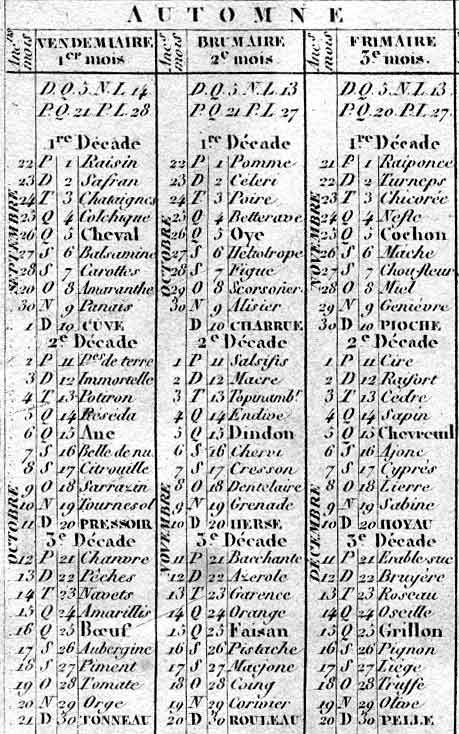 AUTOMNE
Anc.ns mois
VENDEMIAIRE
1er mois
D.Q. 5. N.L 14
P.Q. 21 P.L. 28
1re Décade
SEPTEMBRE
22 P 1 Raisin
23 D 2 Safran
24 T 3 Chataignes
25 Q 4 Colchique
26 Q 5 Cheval
27 S 6 Balsamine
28 S 7 Carottes
29 O 8 Amaranthe
30 N 9 Panais
1 D 10 CUVE
2e Décade
OCTOBRE
2 P 11 Pes de terre
3 D 12 Immortelle
4 T 13 Potiron
5 Q 14 Réséda
6 Q 15 Ane
7 S 16 Belle de nu.
8 S 17 Citrouille
9 O 18 Sarrazin
10 N 19 Tournesol
11 D 20 PRESSOIR
3e Décade
12 P 21 Chanvre
13 D 22 Pêches
14 T 23 Navets
15 Q 24 Amarillis
16 Q 25 Bœuf
17 S 26 Aubergine
18 S 27 Piment
19 O 28 Tomate
20 N 29 Orge
21 D 30 TONNEAU
Anc.s mois
BRUMAIRE
2e mois
D.Q. 5. N.L 13
P.Q. 21 P.L 27
1re Décade
OCTOBRE
22 P 1 Pomme
23 D 2 Céleri
24 T 3 Poire
25 Q 4 Betterave
26 Q 5 Oye
27 S 6 Héliotrope
28 S 7 Figue
29 O 8 Scorsonèr
30 N 9 Alisier
D 10 CHARRUE
2e Décade
NOVEMBRE
1 P 11 Salsifis
2 D 12 Macre
3 T 13 Topinambr
4 Q 14 Endive
5 Q 15 Dindon
6 S 16 Chervi
7 S 17 Cresson
8 O 18 Dentelaire
9 N 19 Grenade
10 D 20 HERSE
3e Décade
11 P 21 Bacchante
12 D 22 Azerole
13 T 23 Garence
14 Q 24 Orange
15 Q 25 Faisan
16 S 26 Pistache
17 S 27 Macjonc
18 O 28 Coing
19 N 29 Cormier
20 D 30 ROULEAU
Anc.s mois
FRIMAIRE
3e mois.
D.Q. 5. N.L 13.
P.Q. 20. P.L 27.
1re Décade
NOVEMBRE
21 P 1 Raiponce
22 D 2 Turneps
23 T 3 Chicorée
24 Q 4 Nefle
25 Q 5 Cochon
26 S 6 Mache
27 S 7 Chou-fleur
28 O 8 Miel
29 N 9 Genièvre
30 D 10 PIOCHE
2e Décade
DECEMBRE
1 P 11 Cire
2 D 12 Raifort
3 T 13 Cèdre
4 Q 14 Sapin
5 Q 15 Chevreuil
6 S 16 Ajonc
7 S 17 Cyprès
8 O 18 Lierre
9 N 19 Sabine
10 D 20 HOYAU
3e Décade
11 P 21 Erable-suc
12 D 22 Bruyère
13 T 23 Roseau
14 Q 24 Oseille
15 Q 25 Grillon
16 S 26 Pignon
17 S 27 Liège
18 O 28 Truffe
19 N 29 Olive
20 D 30 PELLE